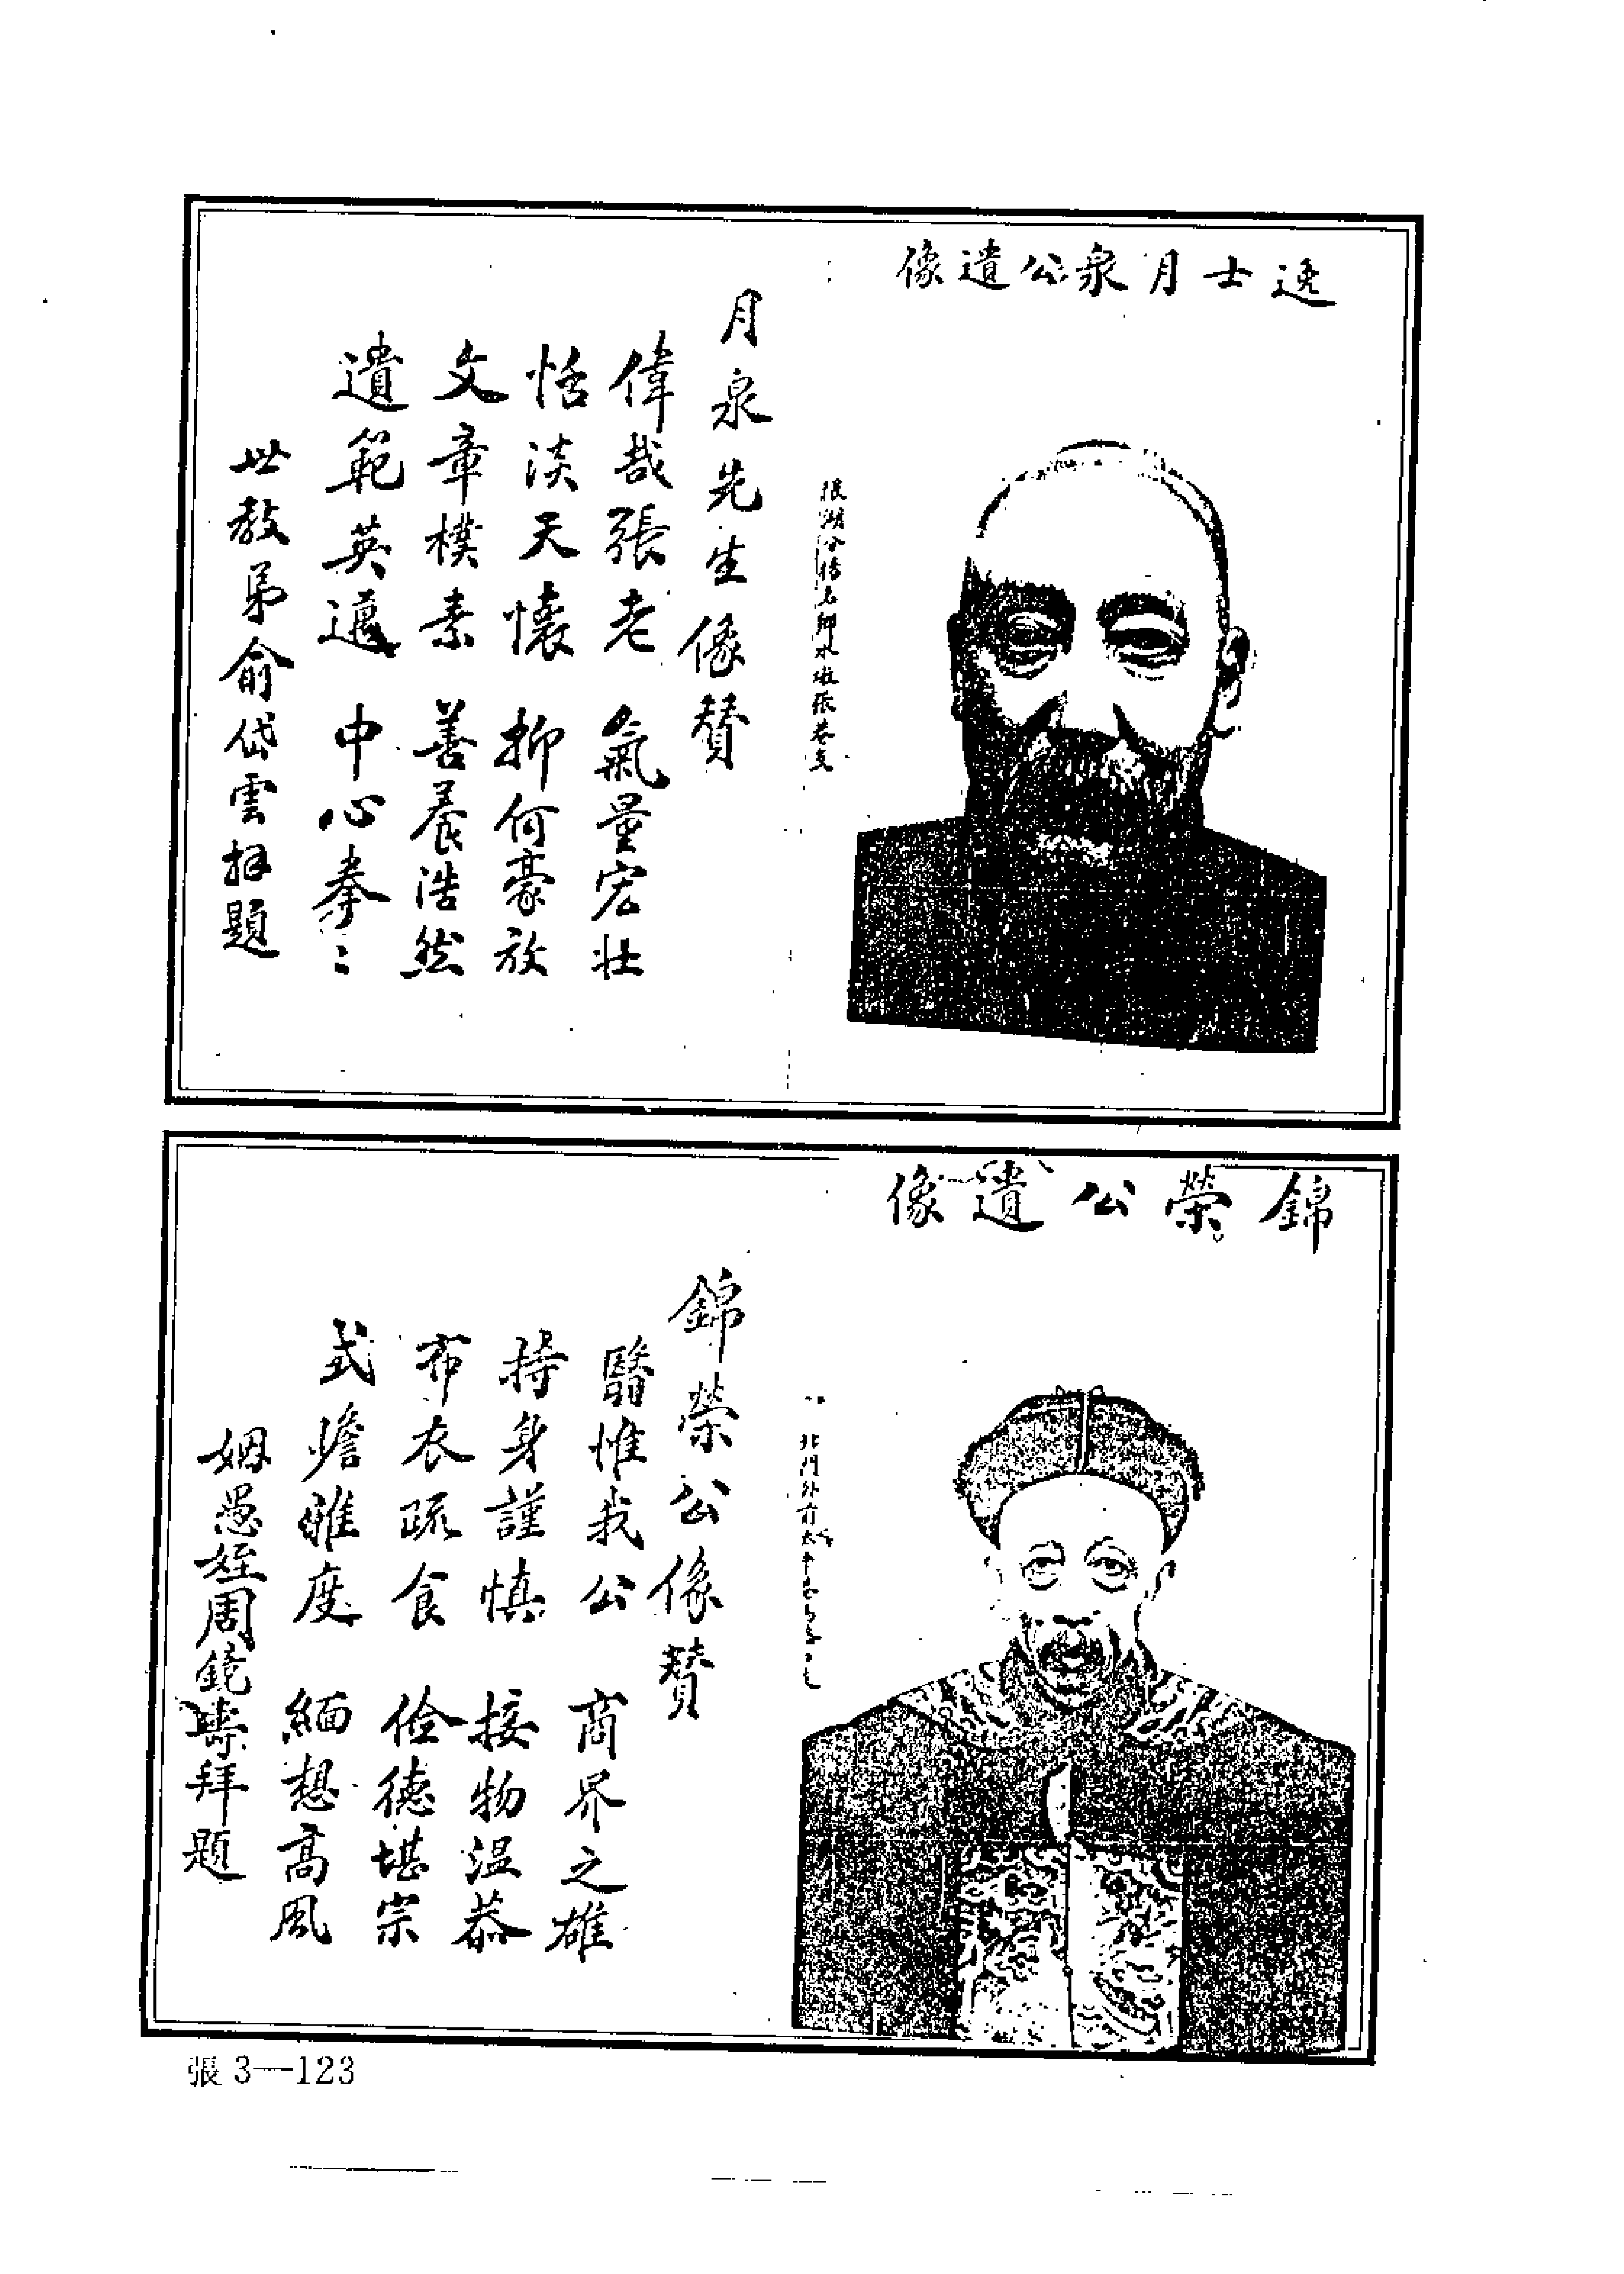 逸士月泉公遺像
月泉先生像贊
偉哉張老 氣量宏壯
恬淡天懷 抑何豪放
文章樸素 善養浩然
遺範英邁 中心拳〻
世教弟俞岱雲拜題
錦榮公遺像
北門外前
錦榮公像贊
緊惟我公 商界之雄
持身謹慎 接物温恭
布衣疏食 儉德堪宗
式瞻雅度 緬想高風
姻愚姪周鏡濤拜題
張3—123